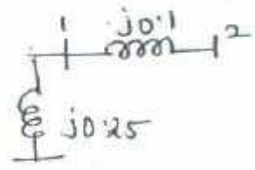 1 j0.1 2
j0.25